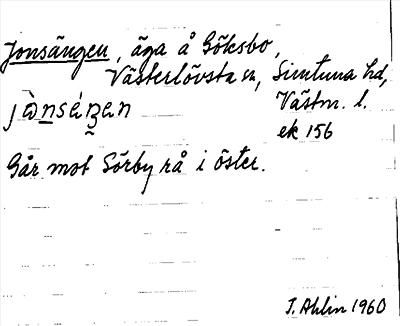 Jonsängen, äga å Göksbo,
Västerlövsta sn, Simtuna hd,
Västm. l.
ek 156
Går mot Sörby rå i öster.
I. Ahlin 1960